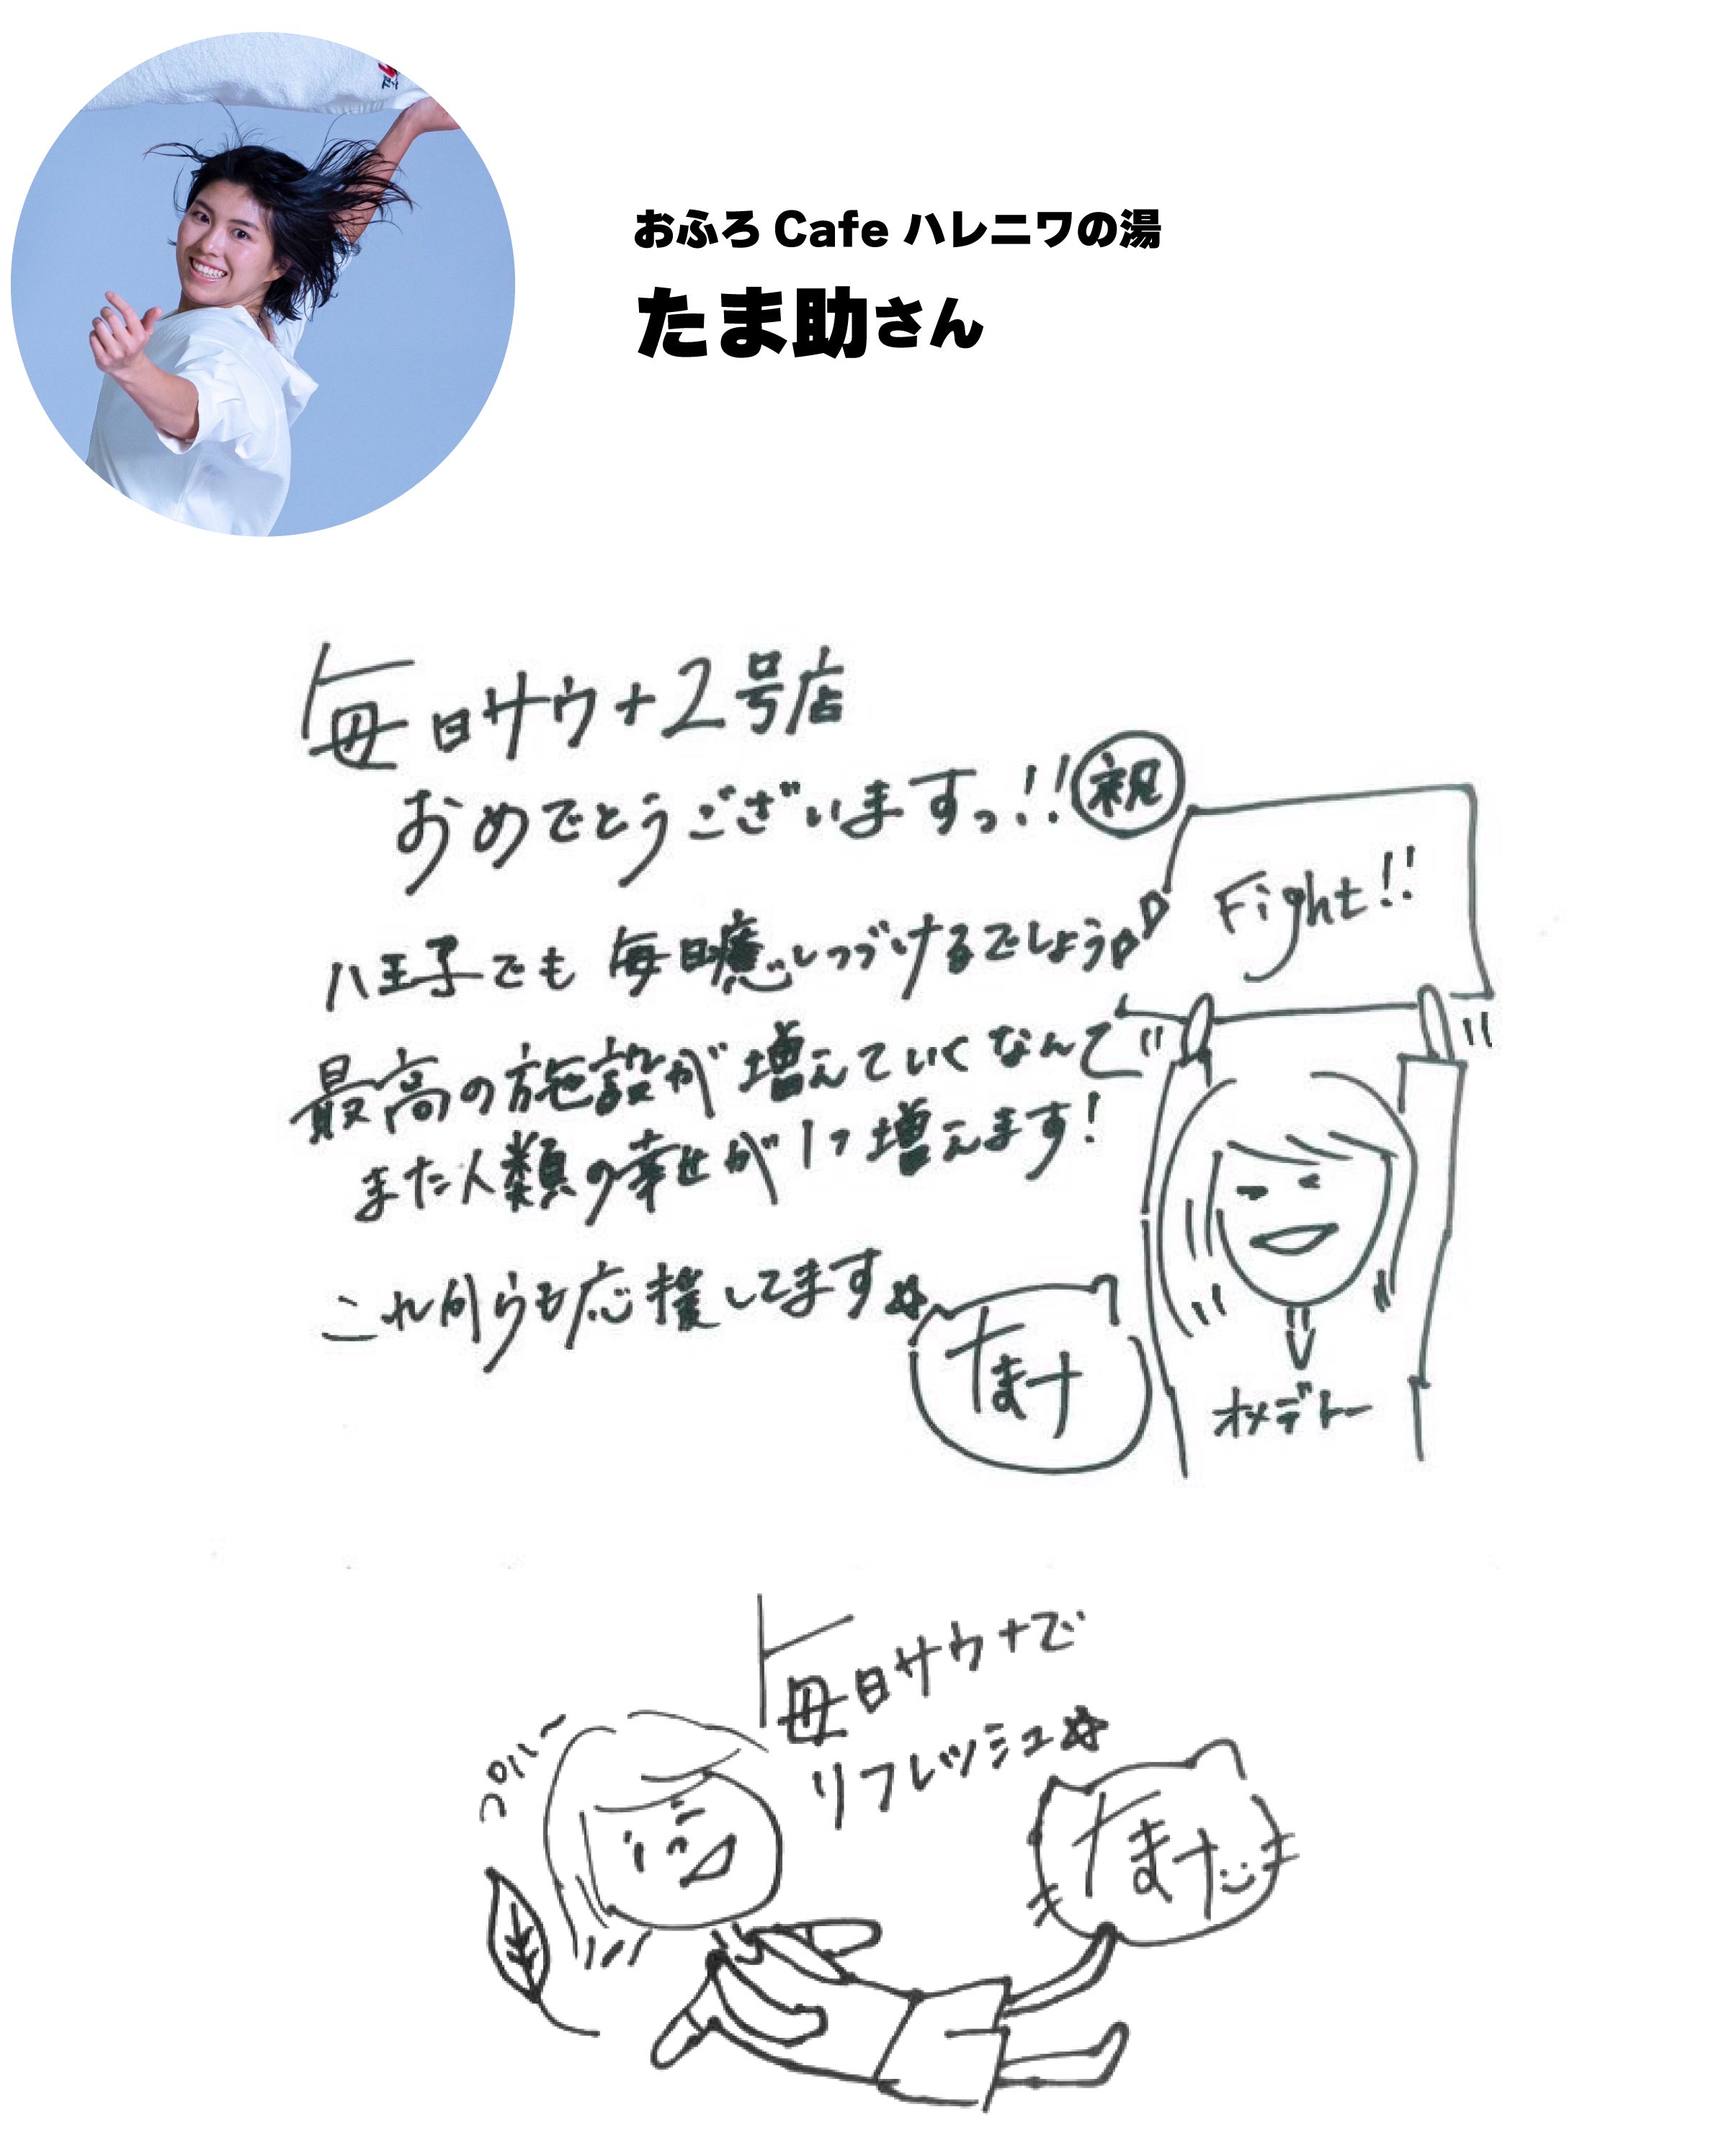 おふろCafe ハレニワの湯
たま助さん
毎日サウナ2号店
おめでとうございますっ!! 祝
Fight!!
八王子でも 毎日癒しつづけるでしょう
最高の施設が増えていくなんて
また人類の幸せが1つ増えます!
これからも応援してます☆
たますけ
オメデトー
毎日サウナで
リフレッシュ☆